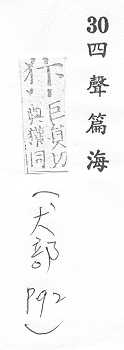 30 四聲篇海
犿 巨員切
與 同
(犬部 P92)